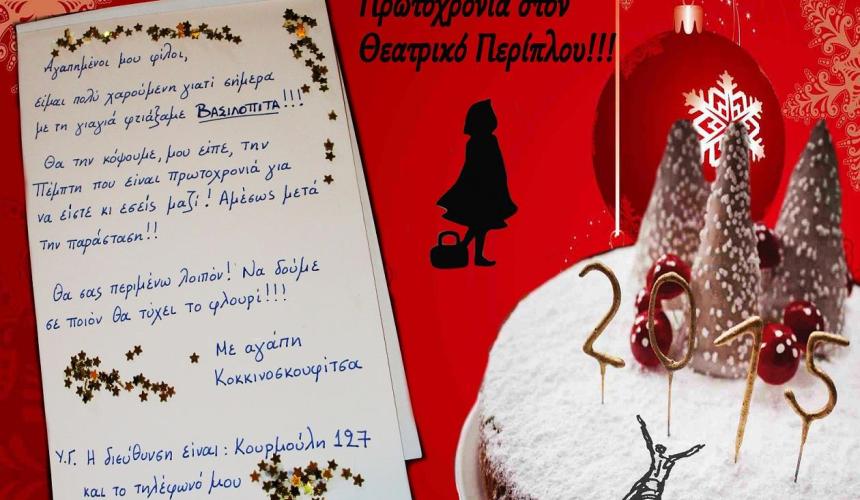 Αγαπημένοι μου φίλοι,
είμαι πολύ χαρούμενη γιατί σήμερα
με τη γιαγιά φτιάξαμε ΒΑΣΙΛΟΠΙΤΑ!!!
Θα την κόψουμε, μου είπε, την
Πέμπτη που είναι πρωτοχρονιά για
να είστε κι εσείς μαζί! Αμέσως μετά
την παράσταση!!
Θα σας περιμένω λοιπόν! Να δούμε
σε ποιόν θα τύχει το φλουρί!!!
Με αγάπη
Κοκκινοσκουφίτσα
Υ.Γ. Η διεύθυνση είναι: Κουρμούλη 127
και το τηλέφωνό μου
Πρωτοχρονιά στον
Θεατρικό Περίπλου!!!
2015